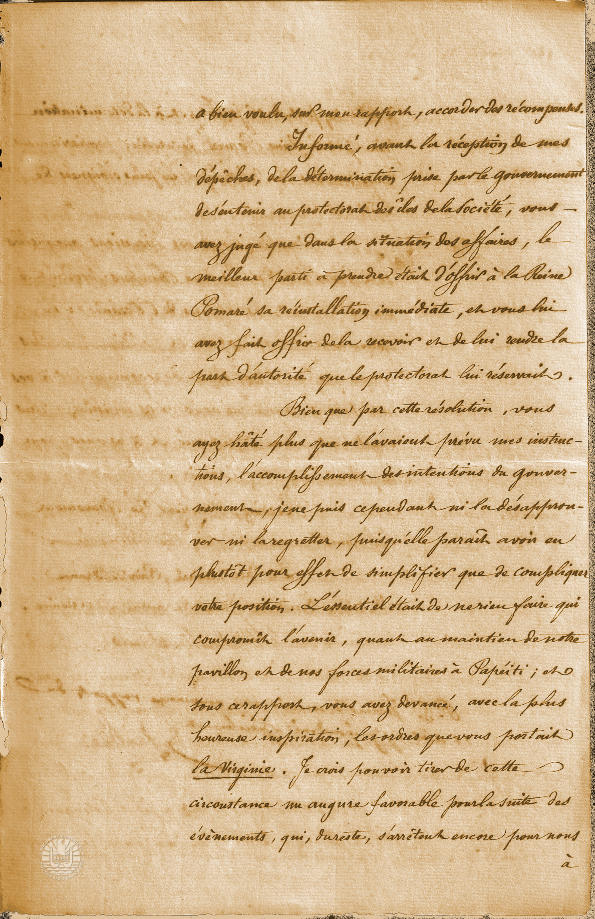 a bien voulu, sur mon rapport, accorder des récompenses.
Informé, avant la réception de mes
dépêches, de la détermination prise par le gouvernement
de s'en tenir au protectorat des îles de la Société, vous
avez jugé que dans la situation des affaires, le
meilleur parti à prendre était d'offrir à la Reine
Pomaré sa réinstallation immédiate, et vous lui
avez fait offrir de la recevoir et de lui rendre la
part d'autorité que le protectorat lui réservait.
Bien que par cette résolution, vous
ayez hâté plus que ne l'avaient prévu mes instruc-
tions, l'accomplissement des intentions du gouver-
nement, je ne puis cependant ni la désapprou-
ver ni la regretter, puisqu'elle paraît avoir eu
plustôt pour effet de simplifier que de compliquer
votre position. L'essentiel était de ne rien faire qui
compromît l'avenir, quant au maintien de notre
pavillon et de nos forces militaires à Papéiti ; et
sous ce rapport, vous avez devancé, avec la plus
heureuse inspiration, les ordres que vous portait
la Virginie. Je crois pouvoir tirer de cette
circonstance un augure favorable pour la suite des
évènements, qui, du reste, s'arrêtent encore pour nous
à